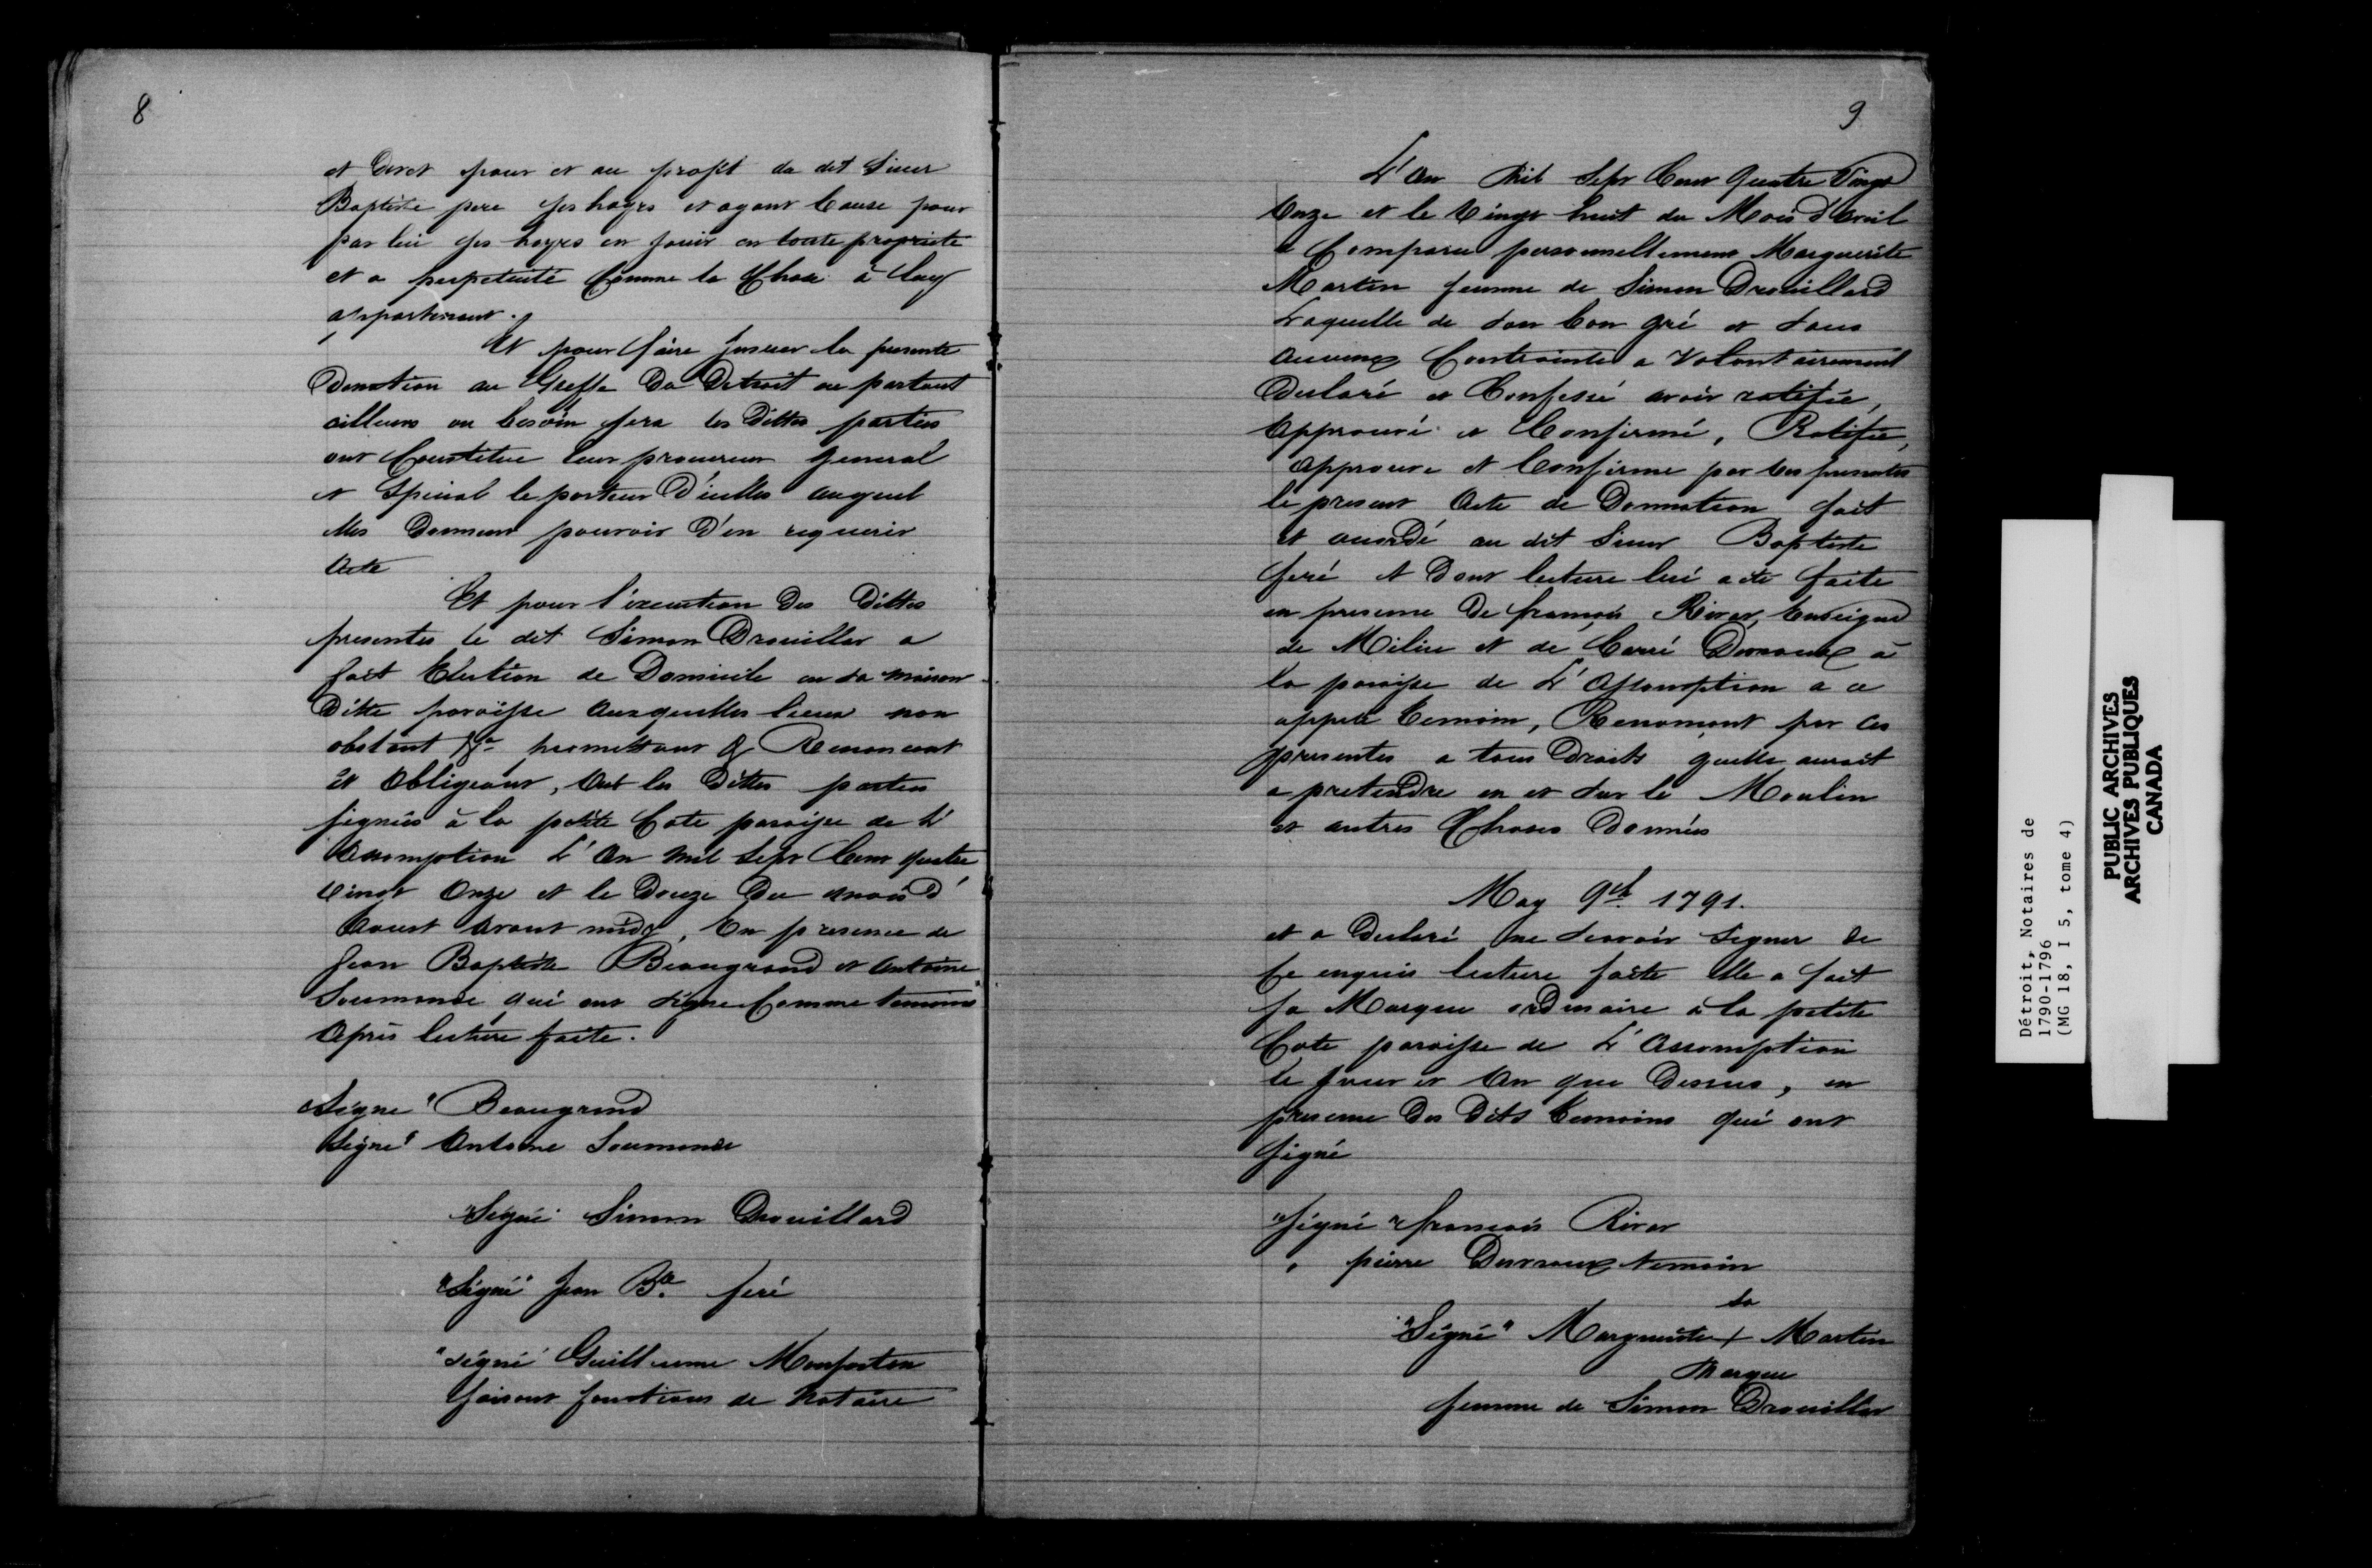 8
et Droit pour et au profit du dit Sieur
Baptiste pere ses hoyrs et ayant Cause pour
par lui ses hoyrs en jouir en toute propriete
et a perpetuité Comme la Chose à luy
appartenant.
Et pour faire Insinuer la presente
Donation au Greffe Du Detroit ou partout
ailleurs ou besoin sera les Dittes parties
ont Constitue leur procureur General
et Special le porteur D'icelles auquel
elles Donnent pouvoir D'en requerir
Acte
Et pour l'execution Des Dittes
presentes le dit Simon Drouillar a
fait Election de Domicile en sa maison
Ditte paroisse Auxquelles lieux non
obstant &a promettant & Renoncent
et Obligeant, Ont les Dittes parties
signées à la petite Cote paroisse de L'
Assomption L'An mil Sept Cent quatre
vingt Onze et le Douze Du mois D'
Aoust Avant midy, En presence de
Jean Baptiste Beaugrand et Antoine
Soumande qui ont signe Comme temoins
Après lecture faite.
Signe" Beaugrand
Signe" Antoine Soumande
"Signé" Simon Drouillard
"Signé" Jean Bte feré
"signé" Guillaume Monforton
faisant fonctions de Notaire
9
L'An Mil Sept Cent Quatre Vingt
Onze et le Vingt huit du Mois D'Avril
a Comparu personnellement Marguerite
Martin femme de Simon Drouillard
Laquelle de son bon gré et sans
Aucune Contrainte a Volontairement
Declaré et Confessé avoir ratifié,
Approuvé et Confirmé, Ratifie,
Approuve et Confirme par les presentes
le present Acte de Donnation fait
et accordé au dit Sieur Baptiste
feré et Dont lecture lui a été faite
en presence de françois Rivar, Enseigne
de Milice et de Carré Derroux à
la paroisse de L'Assomption a ce
appelé temoin, Renonçant par ces
presentes a tous Droits quelle auroit
a pretendre en et sur le Moulin
et autres Choses Données
May 9th 1791.
et a Declaré ne Scavoir Signer de
Ce enquis lecture faite elle a fait
sa Marque ordinaire à la petite
Cote paroisse de L'Assomption
le jour et An que Dessus, en
presence Des Dits temoins qui ont
signé
"signé" françois Rivar
" pierre Derroux temoin
sa
"Signé" Marguerite + Martin
Marque
femme de Simon Drouillar
Détroit, Notaires de
1790-1796
(MG 18, I 5, tome 4)
PUBLIC ARCHIVES
ARCHIVES PUBLIQUES
CANADA